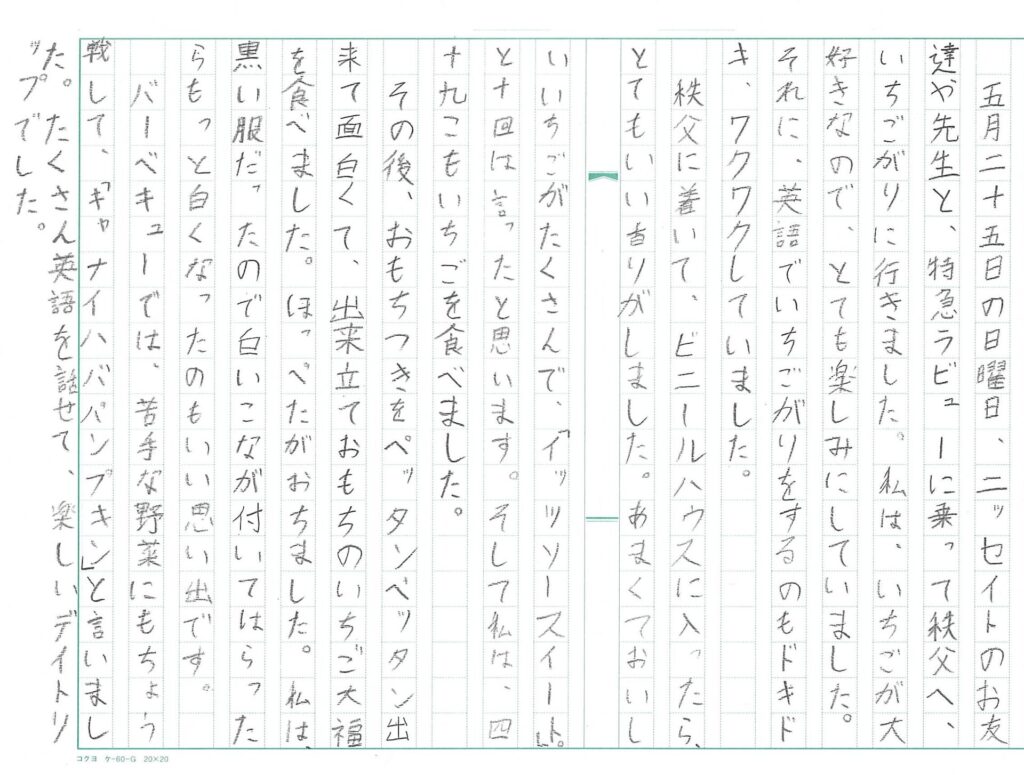 五月二十五日の日曜日、ニッセイトのお友
達や先生と、特急ラビューに乗って秩父へ、
いちごがりに行きました。私は、いちごが大
好きなので、とても楽しみにしていました。
それに、英語でいちごがりをするのもドキド
キ、ワクワクしていました。
秩父に着いて、ビニールハウスに入ったら、
とてもいい香りがしました。あまくておいし
いいちごがたくさんで、「イッツソースイート」。
と十回は言ったと思います。そして私は、四
十九こもいちごを食べました。
その後、おもちつきをペッタンペッタン出
来て面白くて、出来立ておもちのいちご大福
を食べました。ほっぺたがおちました。私は、
黒い服だったので白いこなが付いてはらった
らもっと白くなったのもいい思い出です。
バーベキューでは、苦手な野菜にもちょう
戦して、「キャナイハバパンプキン」と言いまし
た。たくさん英語を話せて、楽しいデイトリ
ップでした。
コクヨ ケ-60-G 20×20